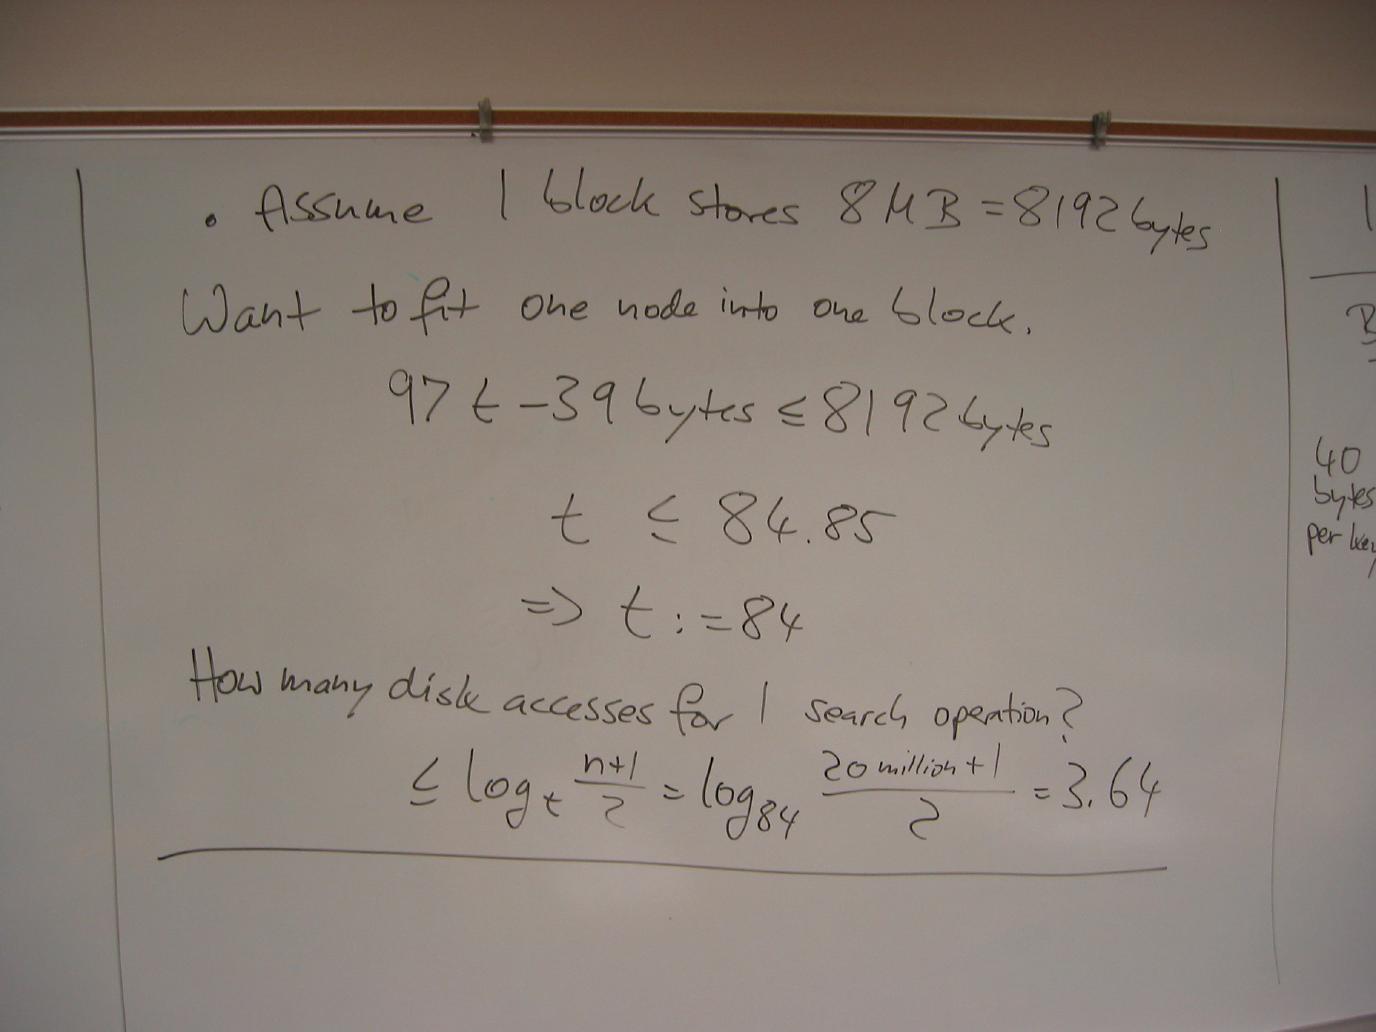 • Assume 1 block stores 8 MB = 8192 bytes
Want to fit one node into one block.
97 t - 39 bytes ≤ 8192 bytes
t ≤ 84.85
=> t := 84
How many disk accesses for 1 search operation?
≤ log_t (n+1)/2 = log_84 (20 million + 1)/2 = 3.64
40
bytes
per key